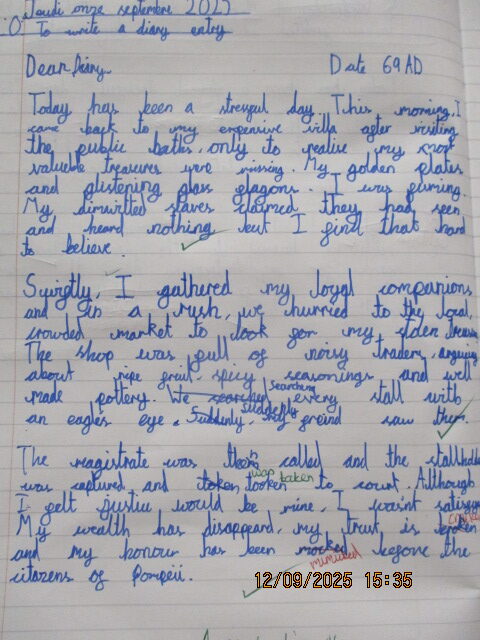 Jeudi onze septembre 2025
O: To write a diary entry
Dear Diary. Date 69 AD
Today has been a stressful day. This morning, I
came back to my expensive villa after visiting
the public baths, only to realise my most
valuable treasures were missing. My golden plates
and glistening glass flagons. I was fuming.
My dimwitted slaves claimed they had seen
and heard nothing but I find that hard
to believe.
Swiftly, I gathered my loyal companions
and in a rush, we hurried to the local,
crowded market to look for my stolen treasure
The shop was full of noisy traders, arguing
about ripe fruit, spicy seasonings and well
made pottery. We searched Searching every stall with
an eagles eye. Suddenly, suddenly my freind saw them.
The magistrate was then called and the stallholder
was captured and token tooken was taken to court. Although
I felt justice would be mine, I wasn't satisfied
My wealth has disappeard, my trust is broken
and my honour has been mocked before the
mimicked
citizens of Pompeii.
12/09/2025 15:35